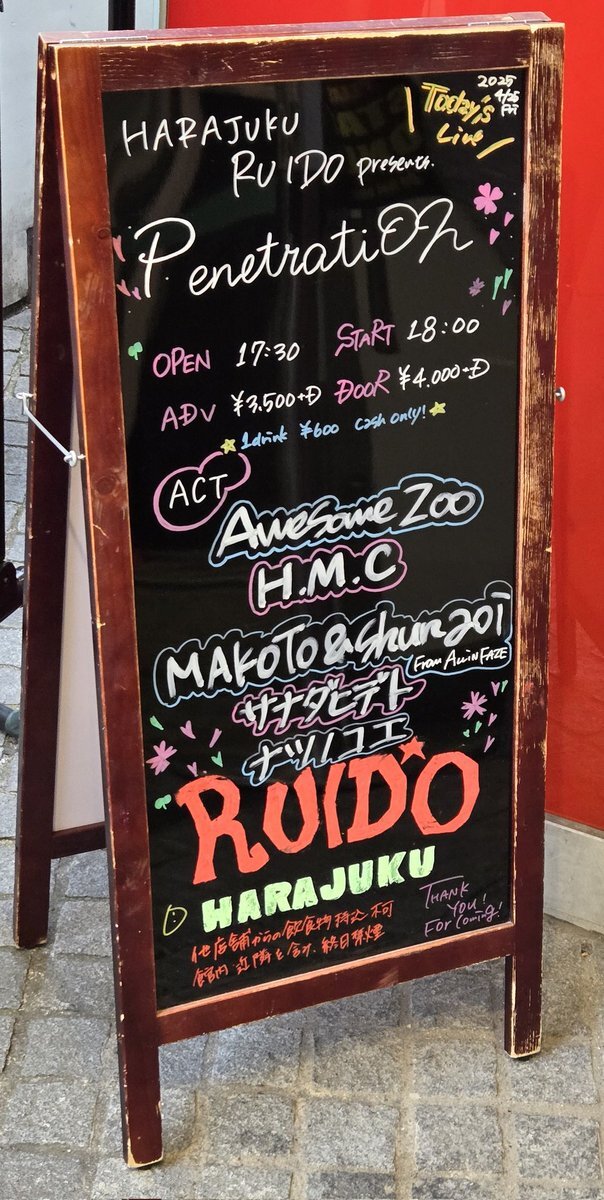 2025
4/25
Fri
Today's
Live
HARAJUKU
RUIDO presents.
PenetratiOn
OPEN 17:30 START 18:00
ADV ¥3,500+D DOOR ¥4,000+D
1drink ¥600 cash only!
ACT
Awesome Zoo
H.M.C
MAKOTO & Shun201
From AwinFAZE
サナダヒデト
ナツノコエ
RUIDO
HARAJUKU
他店舗からの飲食物持込不可
館内近隣を含み、終日禁煙
THANK
YOU!
For Coming!